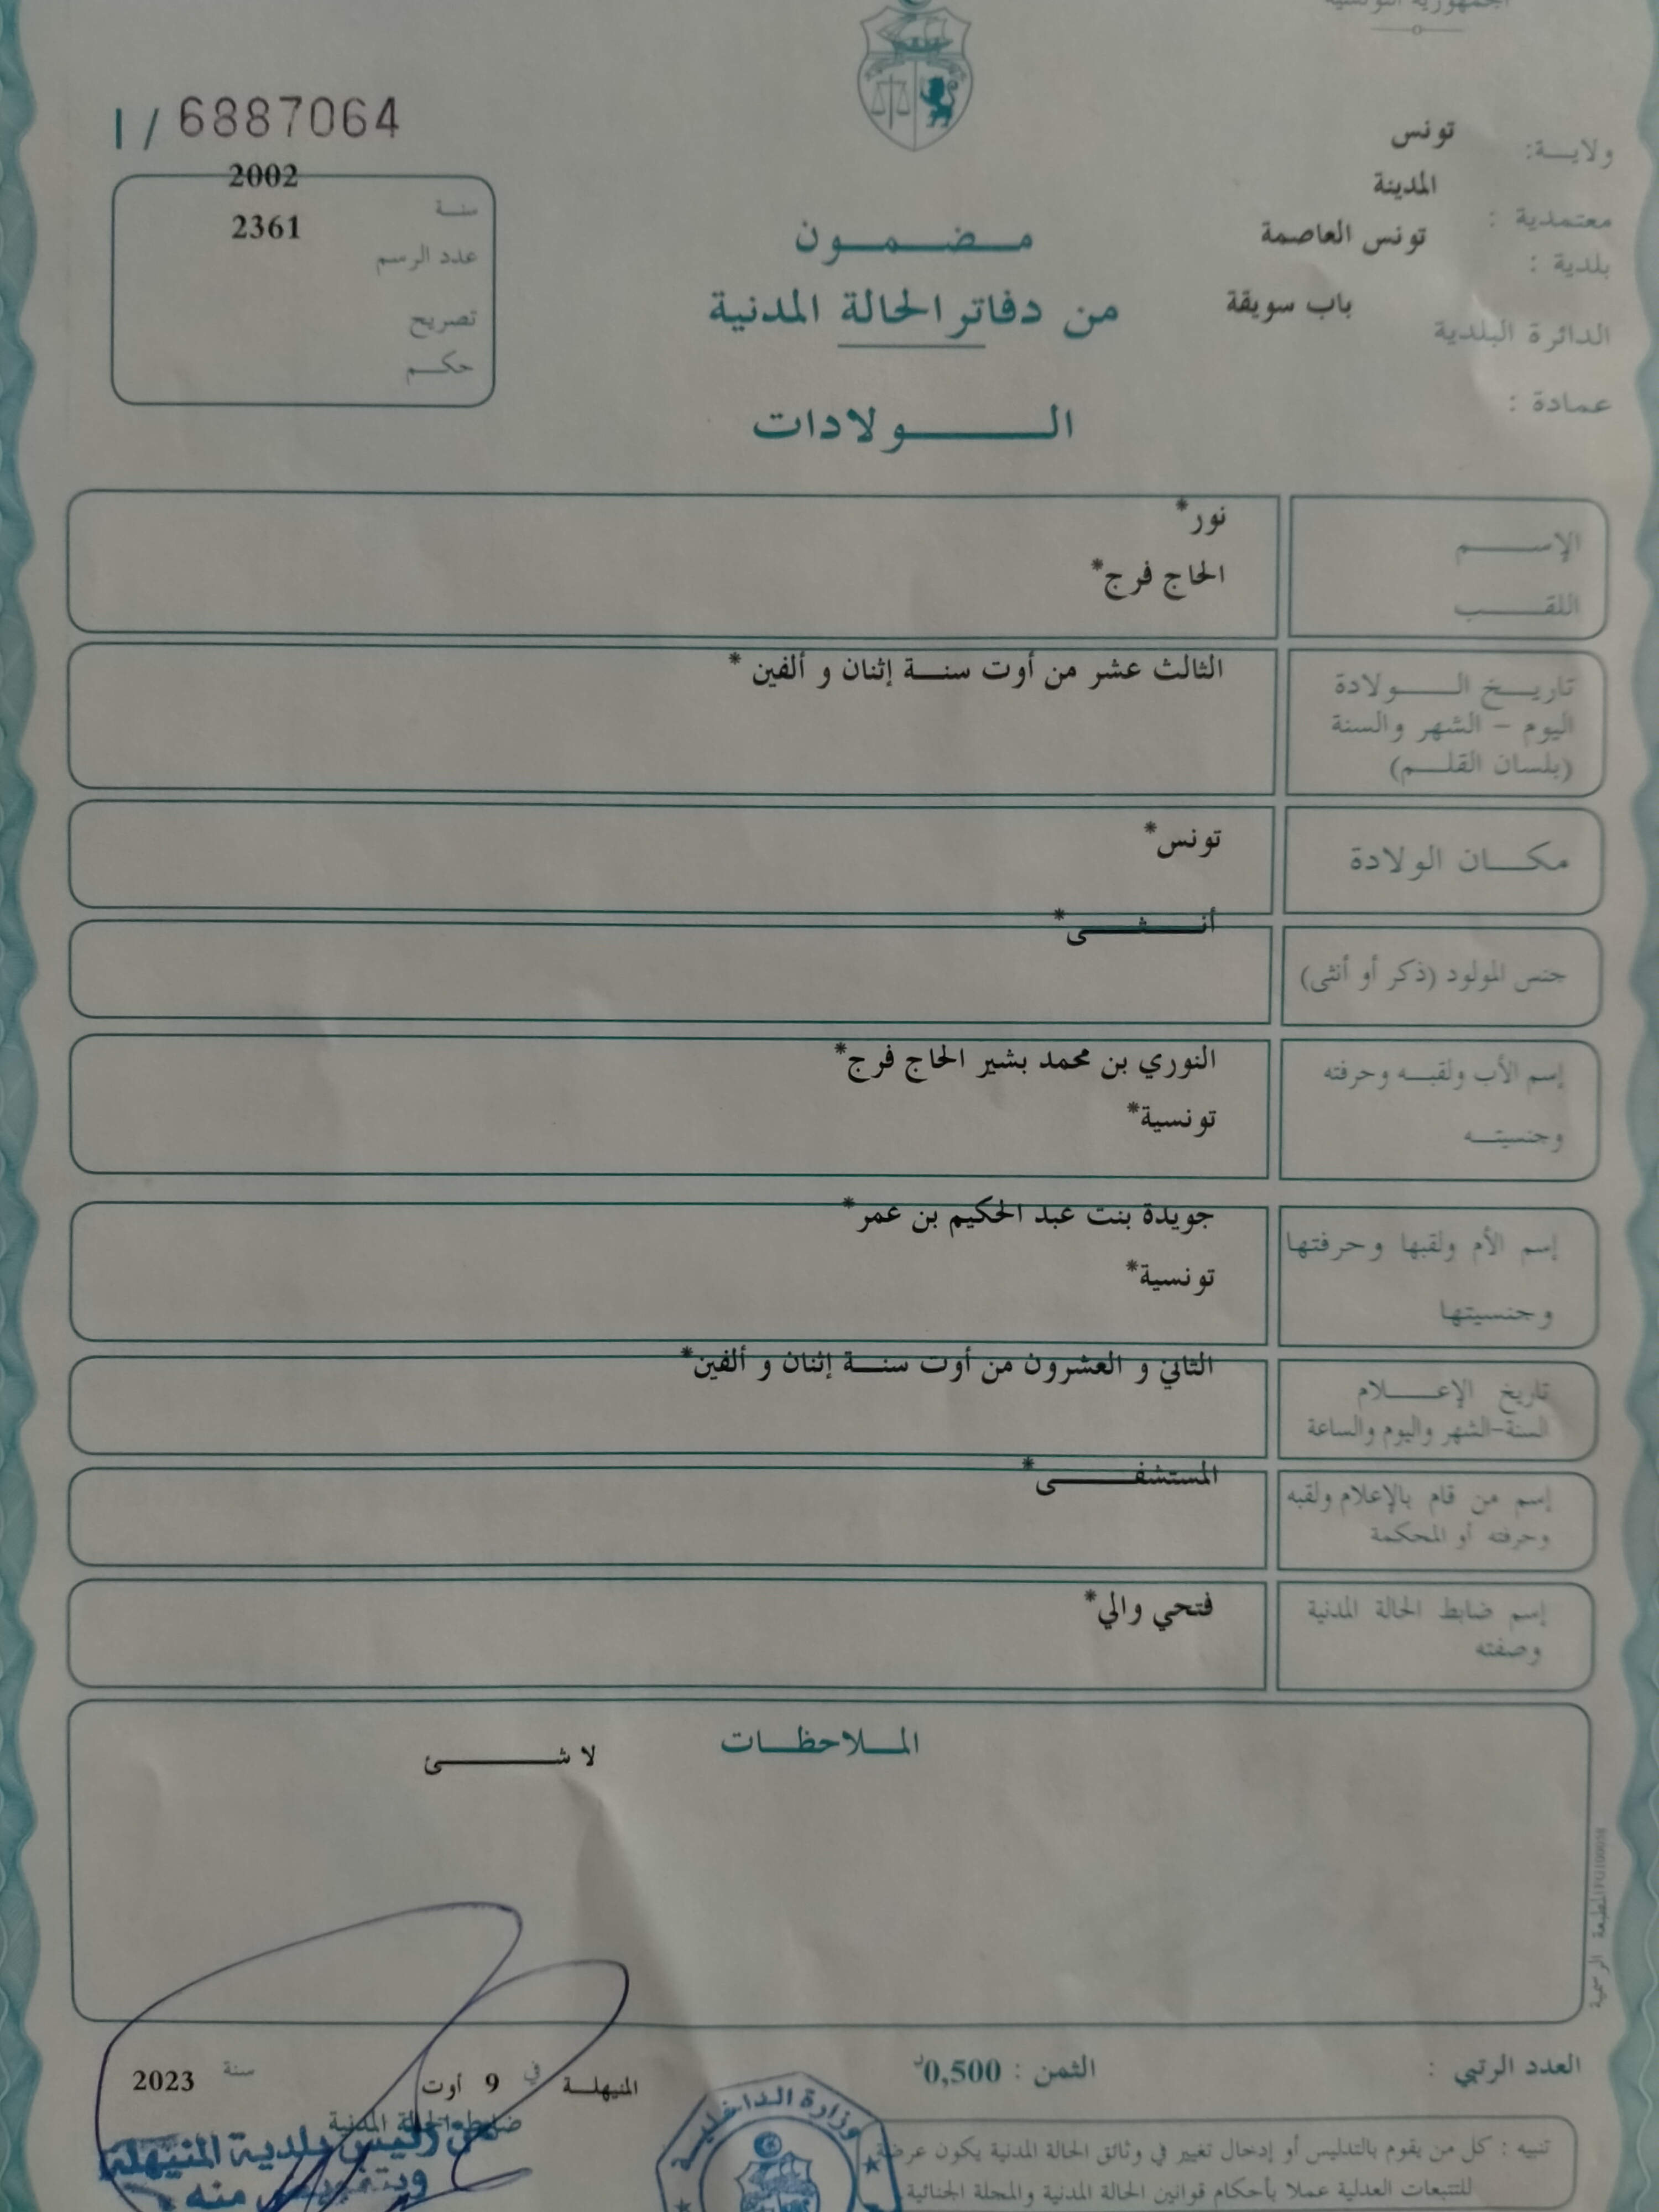 الجمهورية التونسية
ولايــة: تونس
المدينة
معتمدية :
تونس العاصمة
بلدية :
باب سويقة
الدائرة البلدية
عمادة :
I / 6887064
2002
سنـة
2361
عدد الرسم
تصريح
حكـــم
مـــضـــمـــون
من دفاتر الحالة المدنية
الـــــــولادات
الإســـــم نور*
اللقـــــب الحاج فرج*
تاريـــخ الـــــولادة الثالث عشر من أوت سنـــة إثنان و ألفين *
اليوم – الشهر والسنة
(بلسان القلـــم)
مكـــان الولادة تونس*
جنس المولود (ذكر أو أنثى) أنــــثــــى*
إسم الأب ولقبــه وحرفته النوري بن محمد بشير الحاج فرج*
وجنسيتــه تونسية*
إسم الأم ولقبها وحرفتها جويدة بنت عبد الحكيم بن عمر*
وجنسيتها تونسية*
تاريخ الإعــــلام الثاني و العشرون من أوت سنـــة إثنان و ألفين*
السنة-الشهر واليوم والساعة
إسم من قام بالإعلام ولقبه المستشفـــــــى*
وحرفته أو المحكمة
إسم ضابط الحالة المدنية فتحي والي*
وصفته
المـــلاحظـــات
لا شـــــــئ
المطبعة الرسمية
العدد الرتبي :
الثمن : 0,500د
المنيهلــة في 9 أوت سنة 2023
ضابط الحالة المدنية
عن رئيس بلدية المنيهلة
وبتفويض منه
وزارة الداخلية
تنبيه : كل من يقوم بالتدليس أو إدخال تغيير في وثائق الحالة المدنية يكون عرضة
للتتبعات العدلية عملا بأحكام قوانين الحالة المدنية والمجلة الجنائية